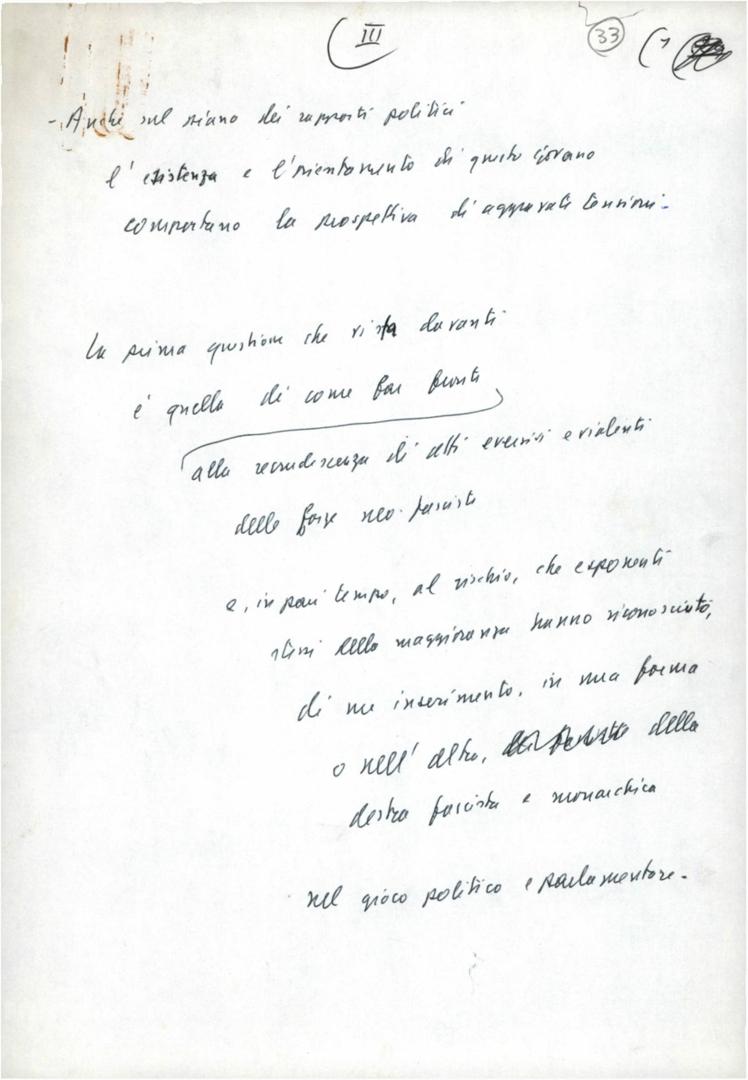 III
33
- Anche sul piano dei rapporti politici
l'esistenza e l'orientamento di questo governo
comportano la prospettiva di aggravate tensioni.
La prima questione che vi sta davanti
è quella di come far fronte
alla recrudescenza di atti eversivi e violenti
delle forze neo-fasciste
e, in pari tempo, al rischio, che esponenti
stessi della maggioranza hanno riconosciuto,
di un inserimento, in una forma
o nell'altra, della
destra fascista e monarchica
nel gioco politico e parlamentare.